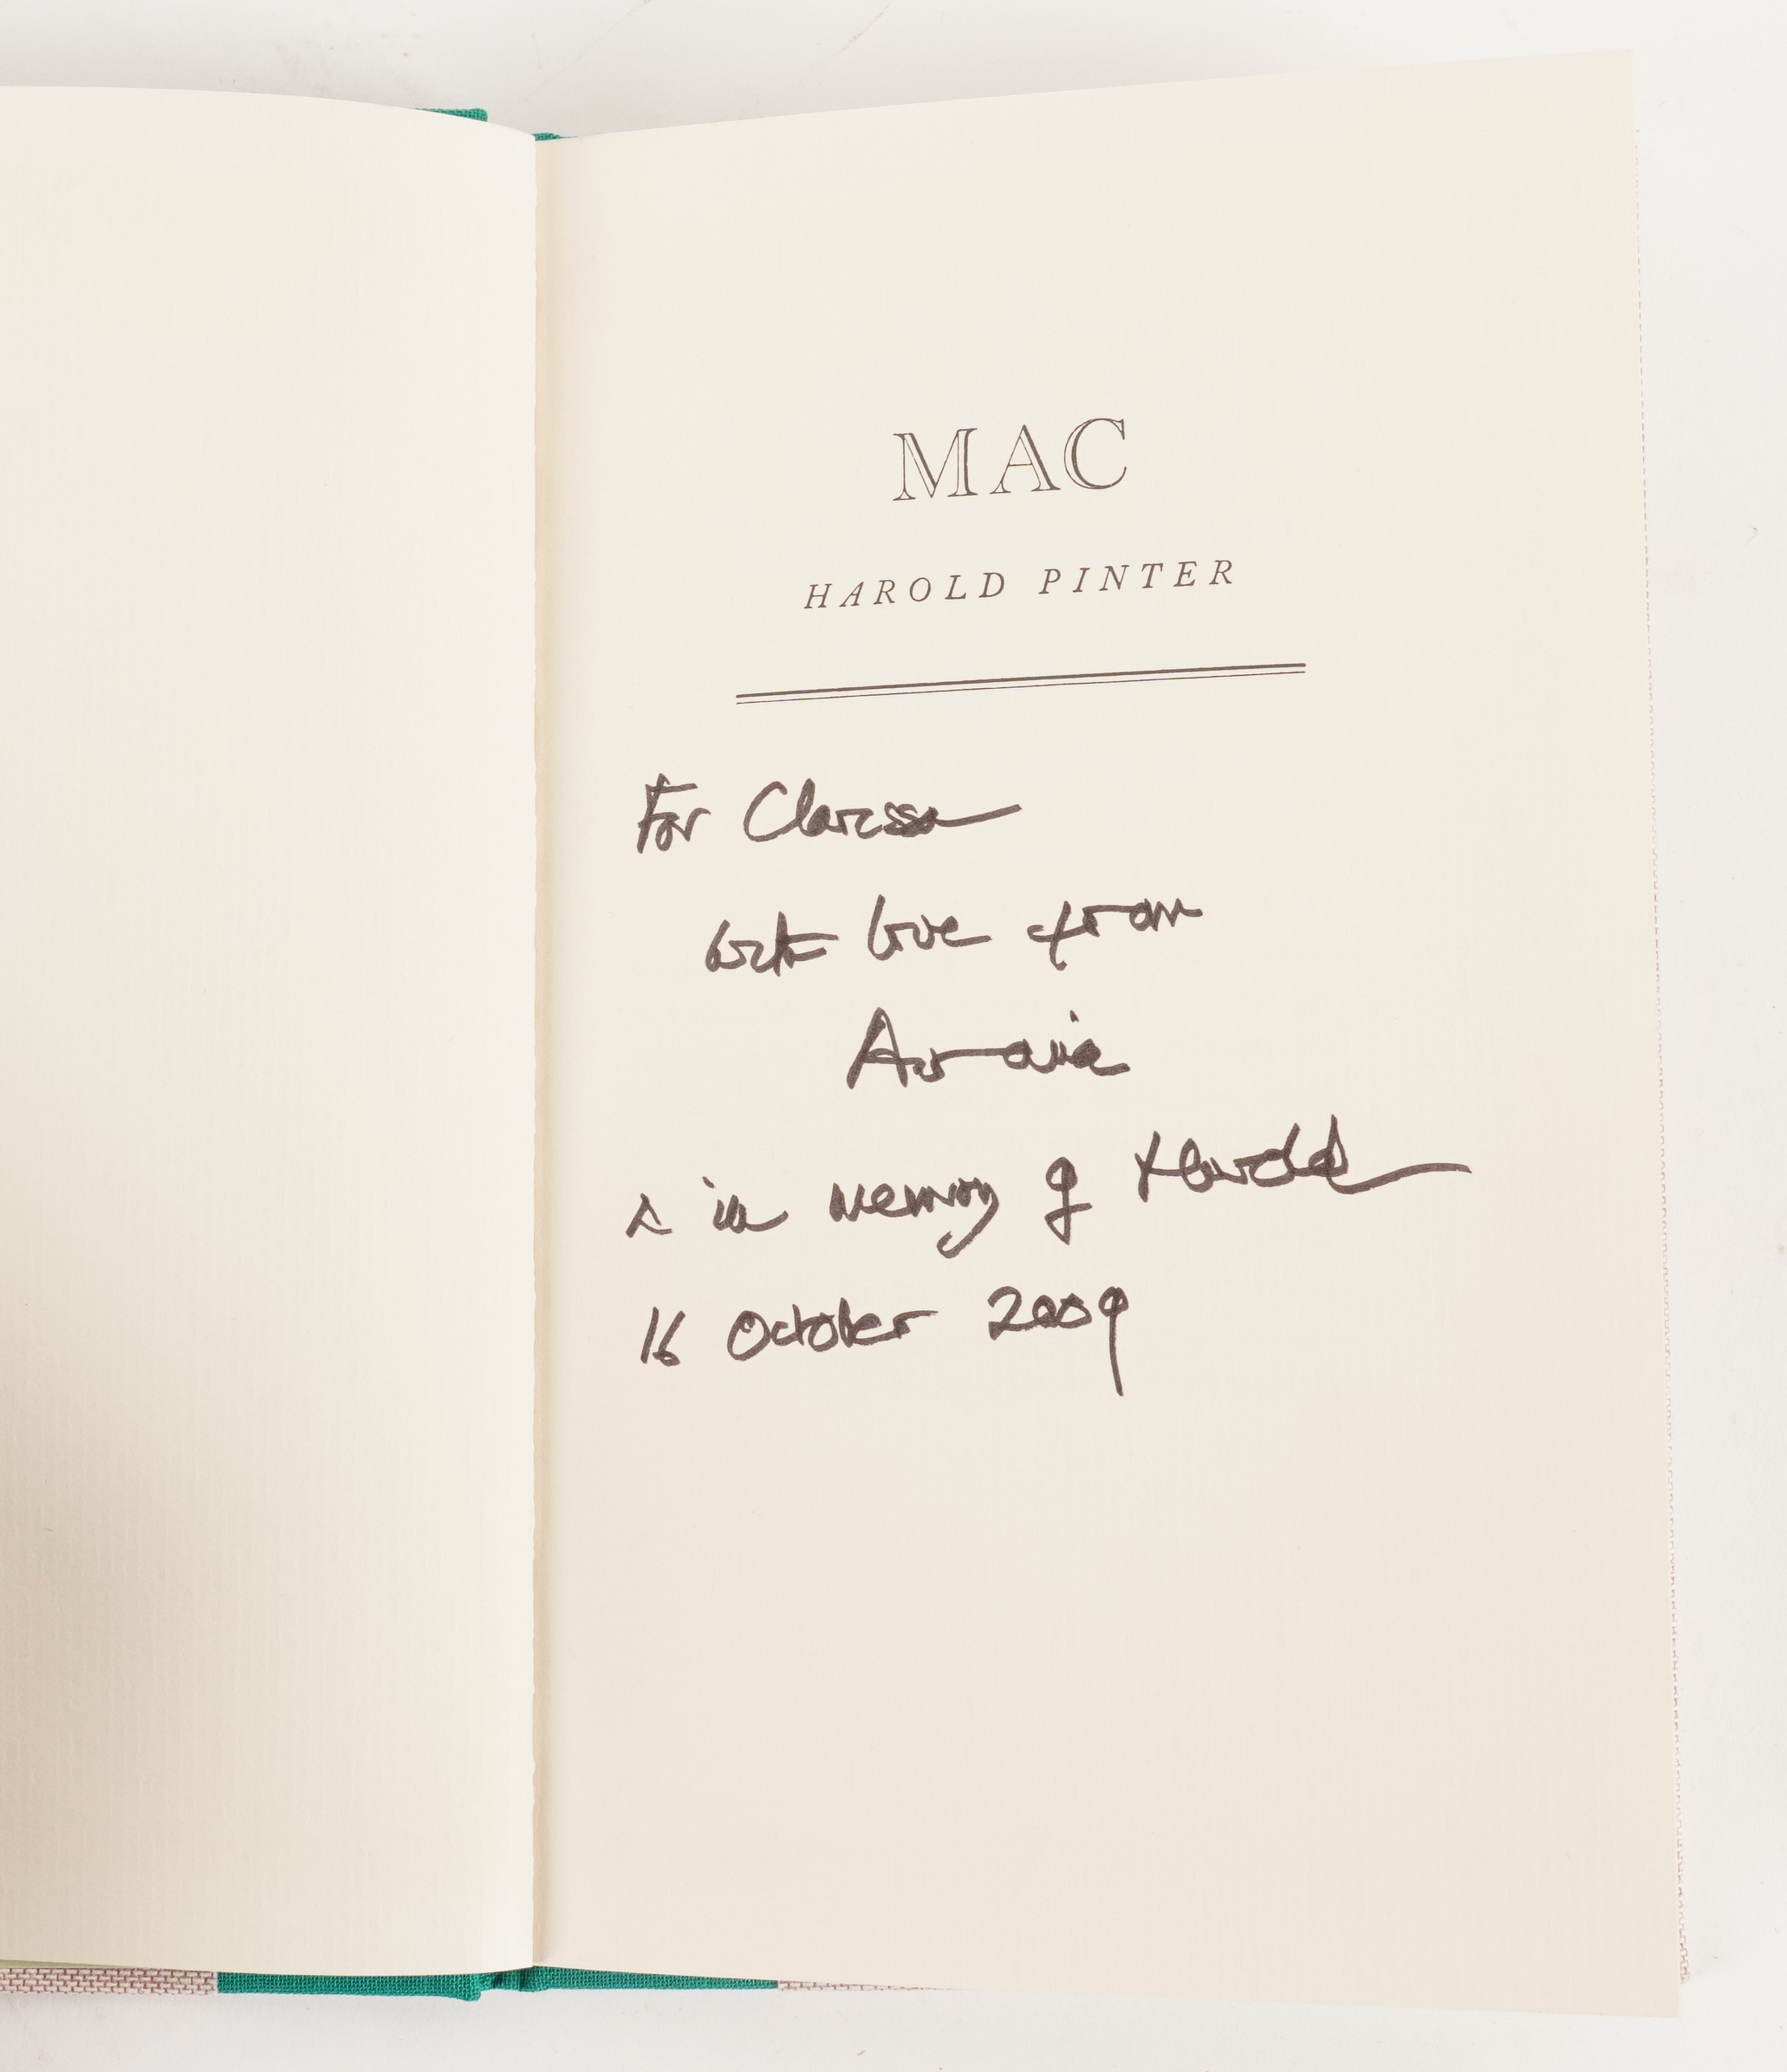 MAC
HAROLD PINTER
For Clarissa
with love from
Antonia
& in memory of Harold
16 October 2009